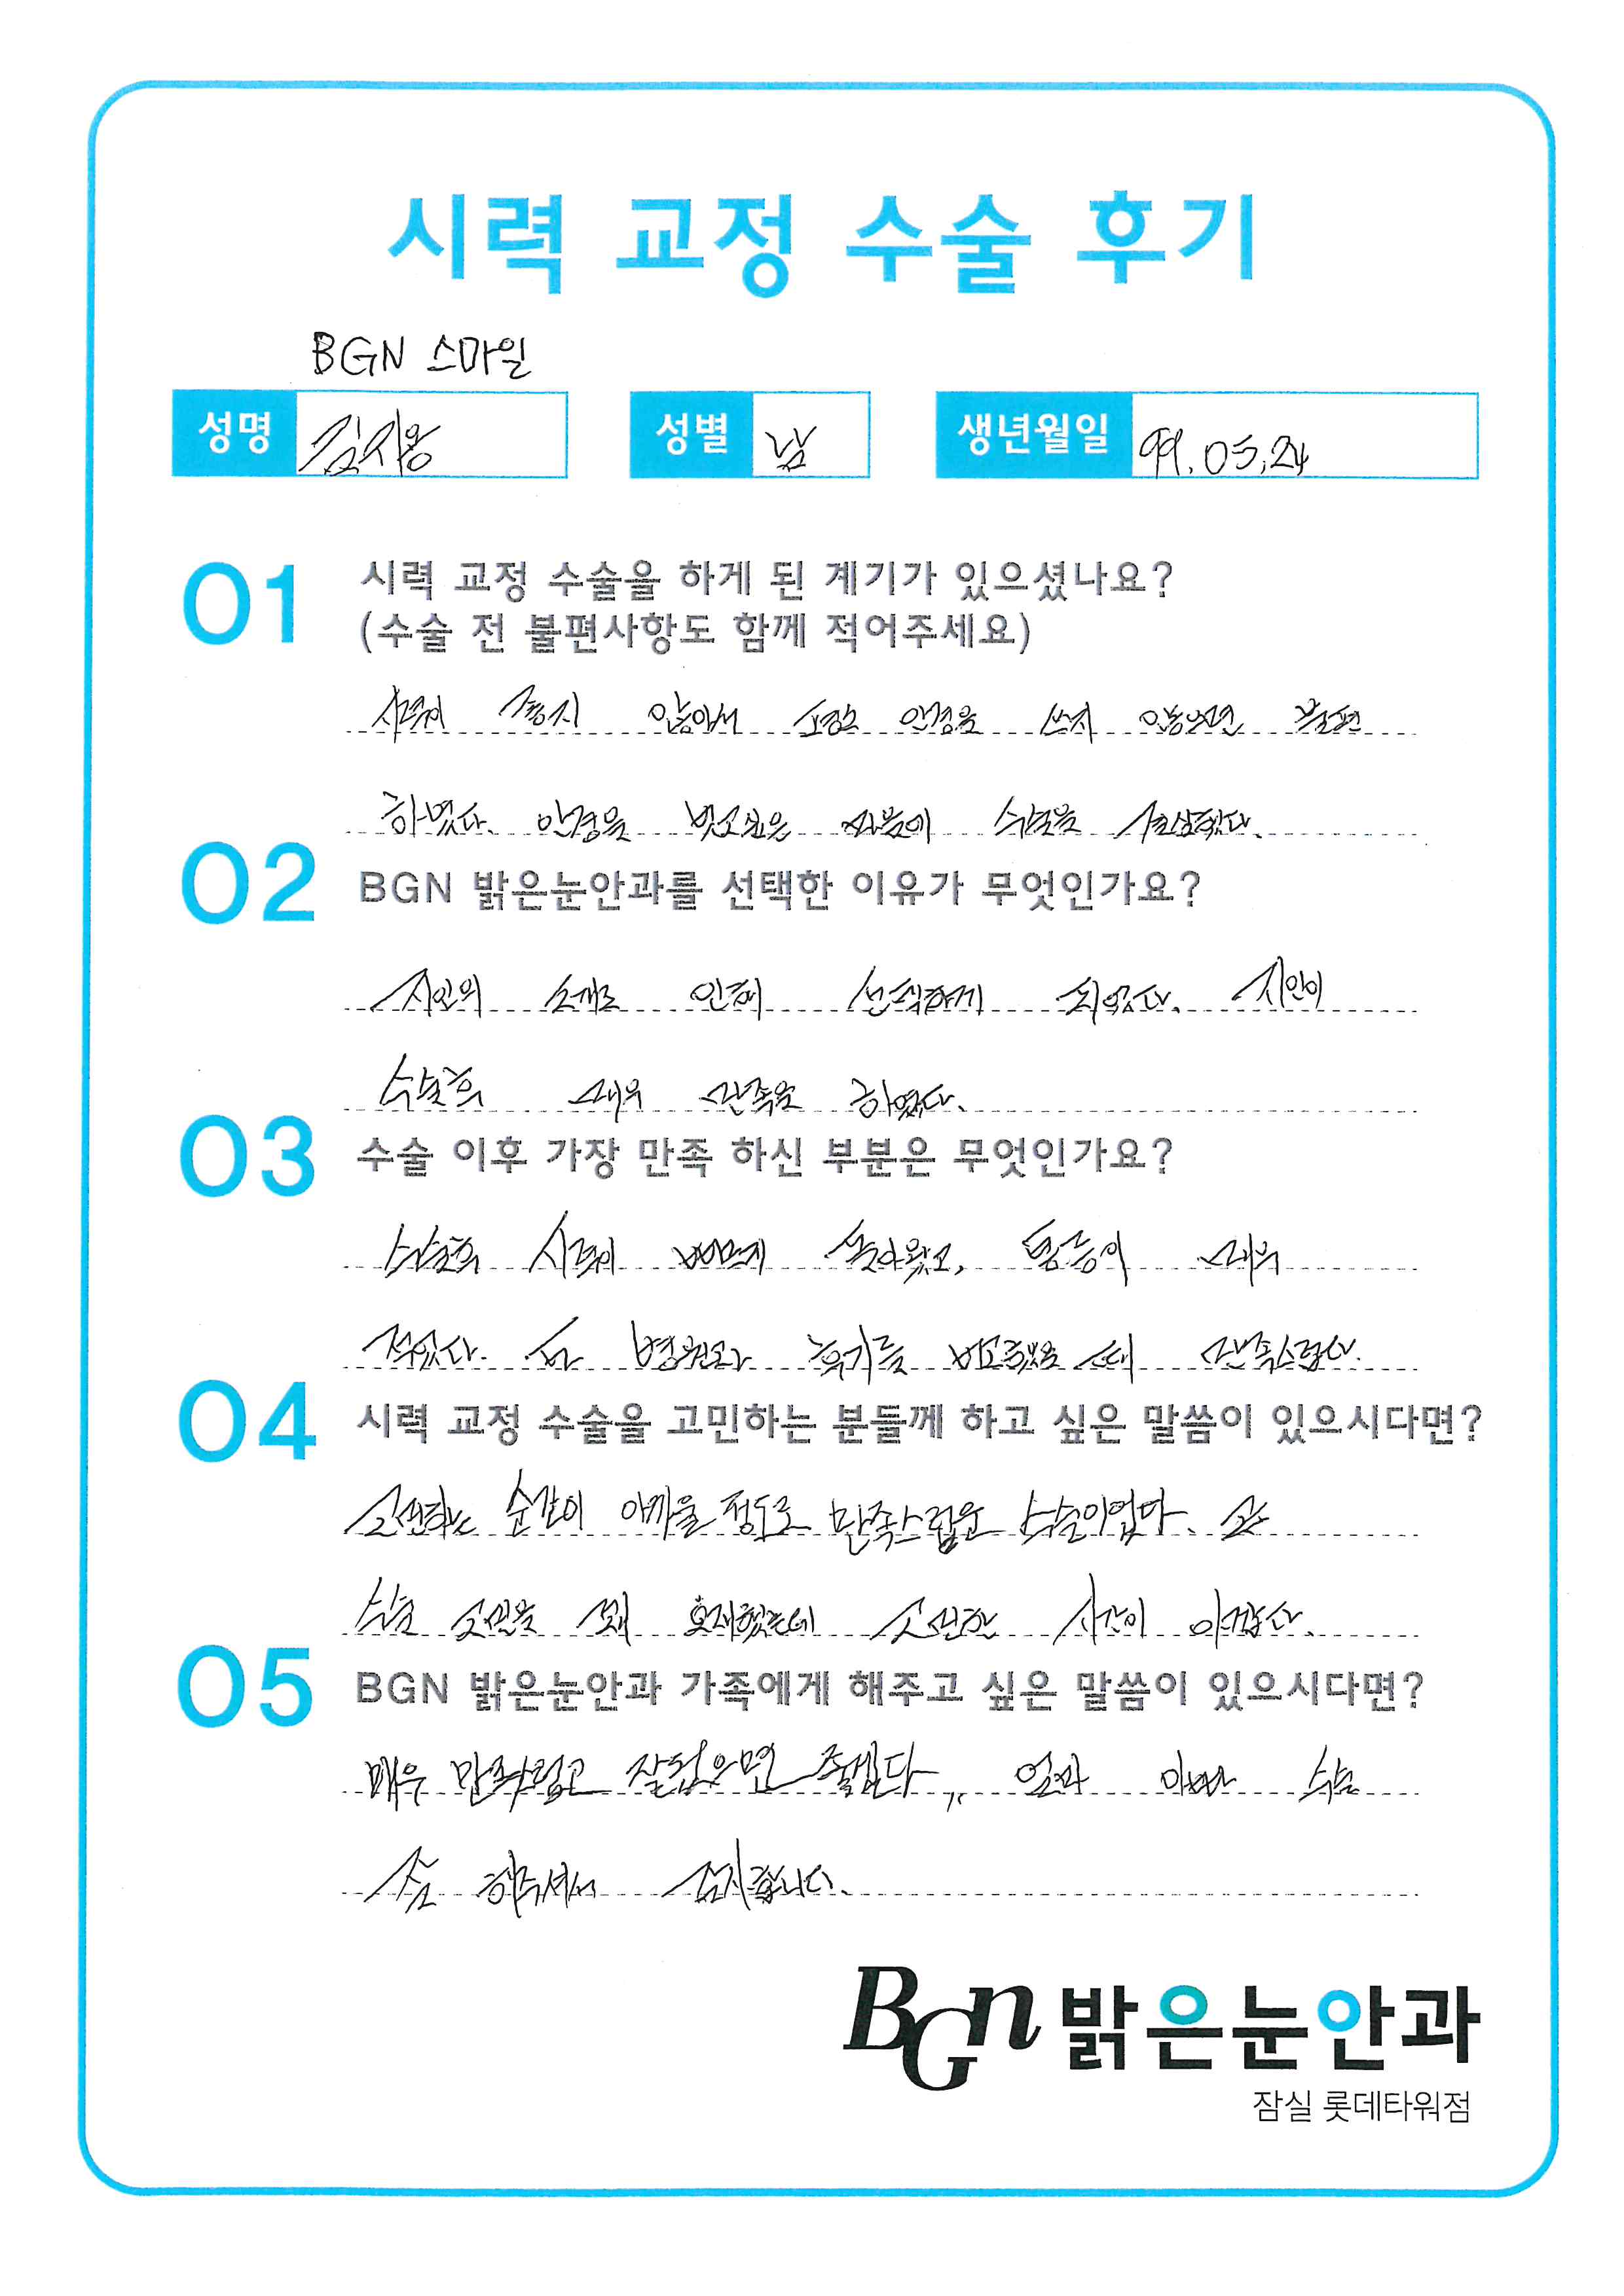 시력 교정 수술 후기
BGN 스마일
성명 김지용 성별 남 생년월일 99.05.24
01 시력 교정 수술을 하게 된 계기가 있으셨나요?
(수술 전 불편사항도 함께 적어주세요)
시력이 좋지 않아서 안경을 쓰지 않으면 불편
하였다. 안경을 벗고싶은 수술을
02 BGN 밝은눈안과를 선택한 이유가 무엇인가요?
지인의 소개로 인해 선택하게 되었다. 지인이
수술후 매우 만족을 하였다.
03 수술 이후 가장 만족 하신 부분은 무엇인가요?
수술후 시력이 빠르게 돌아왔고, 통증이 매우
적었다. 후기를 때 만족스럽다.
04 시력 교정 수술을 고민하는 분들께 하고 싶은 말씀이 있으시다면?
고민하는 순간이 아까울 정도로 만족스러운 수술이였다.
수술 고민을 고민한 시간이 아깝다.
05 BGN 밝은눈안과 가족에게 해주고 싶은 말씀이 있으시다면?
매우 만족스럽고 잘됐으면 좋겠다,, 수술
해주셔서 감사합니다.
BGN 밝은눈안과
잠실 롯데타워점